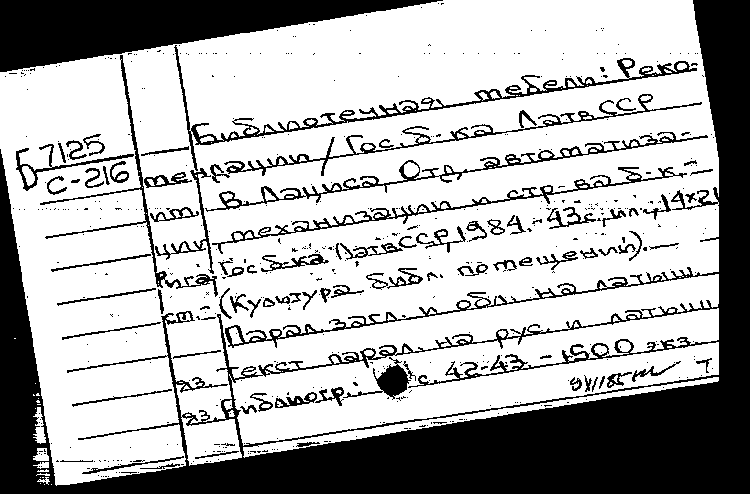 Библиотечная мебели: Реко-
Б 7125
С-216
мендации / Гос. б-ка ЛатвССР
им. В. Лациса, Отд. автоматиза-
ции, механизации и стр-ва б-к.-
Рига: Гос. б-ка ЛатвССР, 1984.- 43 с., ил.; 14×21
см.- (Культура библ. помещений).—
Парал. загл. и обл. на латыш.
яз. Текст парал. на рус. и латыш
яз. Библиогр.: с. 42-43. - 1500 экз.